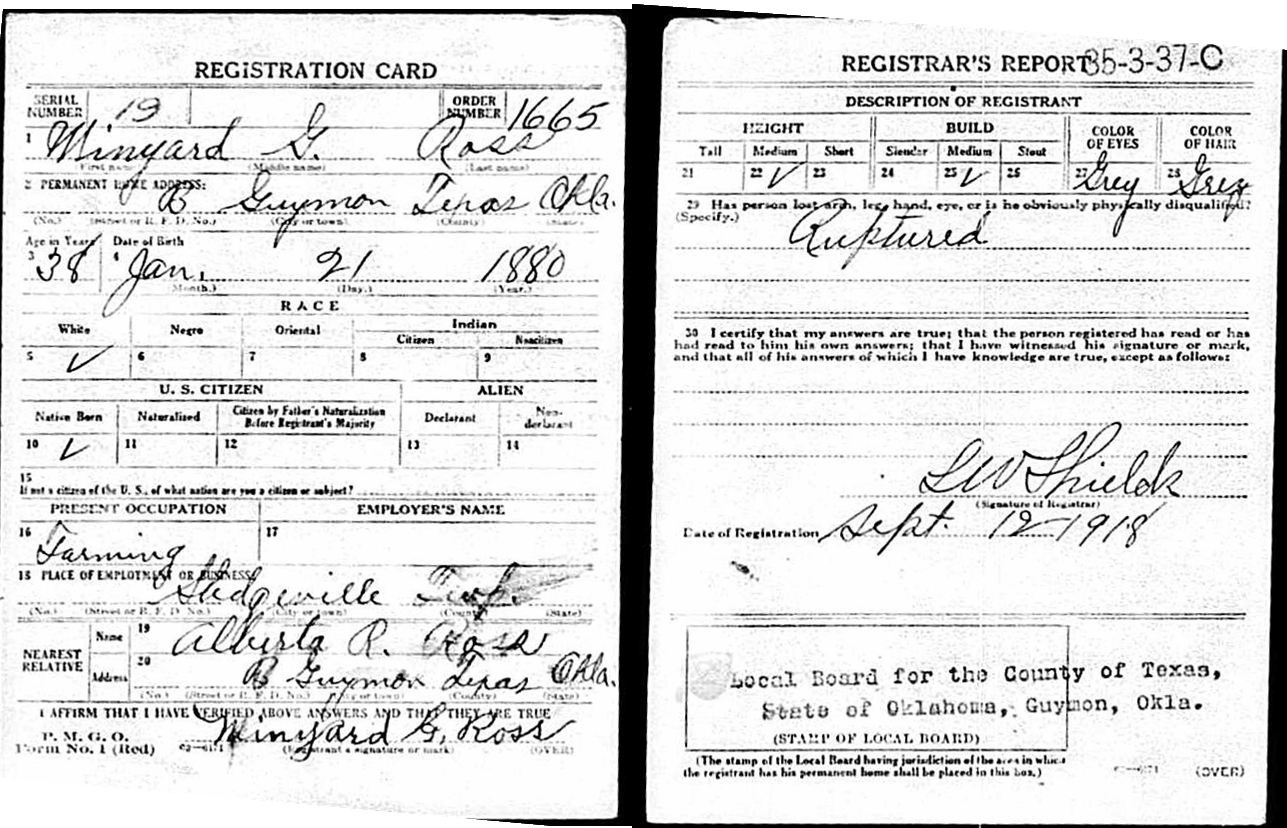 REGISTRATION CARD
SERIAL NUMBER 19 ORDER NUMBER 1665
1 Minyard G. Ross
(First name) (Middle name) (Last name)
2 PERMANENT HOME ADDRESS:
B Guymon Texas Okla.
(No.) (Street or R. F. D. No.) (City or town) (County) (State)
Age in Years Date of Birth
3 38 4 Jan. 21 1880
(Month.) (Day.) (Year.)
RACE
White Negro Oriental Indian
Citizen Noncitizen
5 ✓ 6 7 8 9
U. S. CITIZEN ALIEN
Native Born Naturalized Citizen by Father's Naturalization Before Registrant's Majority Declarant Non-declarant
10 ✓ 11 12 13 14
15
If not a citizen of the U. S., of what nation are you a citizen or subject?
PRESENT OCCUPATION EMPLOYER'S NAME
16 Farming 17
18 PLACE OF EMPLOYMENT OR BUSINESS:
Twp.
(No.) (Street or R. F. D. No.) (City or town) (County) (State)
NEAREST RELATIVE Name 19 Alberta R. Ross
Address 20 B Guymon Texas Okla.
(No.) (Street or R. F. D. No.) (City or town) (County) (State)
I AFFIRM THAT I HAVE VERIFIED ABOVE ANSWERS AND THAT THEY ARE TRUE
P. M. G. O.
Form No. 1 (Red) Minyard G. Ross
(Registrant's signature or mark) (OVER)
REGISTRAR'S REPORT 35-3-37-C
DESCRIPTION OF REGISTRANT
HEIGHT BUILD COLOR OF EYES COLOR OF HAIR
Tall Medium Short Slender Medium Stout
21 22 ✓ 23 24 25 ✓ 26 27 Grey 28 Grey
29 Has person lost arm, leg, hand, eye, or is he obviously physically disqualified?
(Specify.) Ruptured
30 I certify that my answers are true; that the person registered has read or has
had read to him his own answers; that I have witnessed his signature or mark,
and that all of his answers of which I have knowledge are true, except as follows:
LW Shields
(Signature of Registrar)
Date of Registration Sept. 12 1918
Local Board for the County of Texas,
State of Oklahoma, Guymon, Okla.
(STAMP OF LOCAL BOARD)
(The stamp of the Local Board having jurisdiction of the area in which
the registrant has his permanent home shall be placed in this box.)
(OVER)